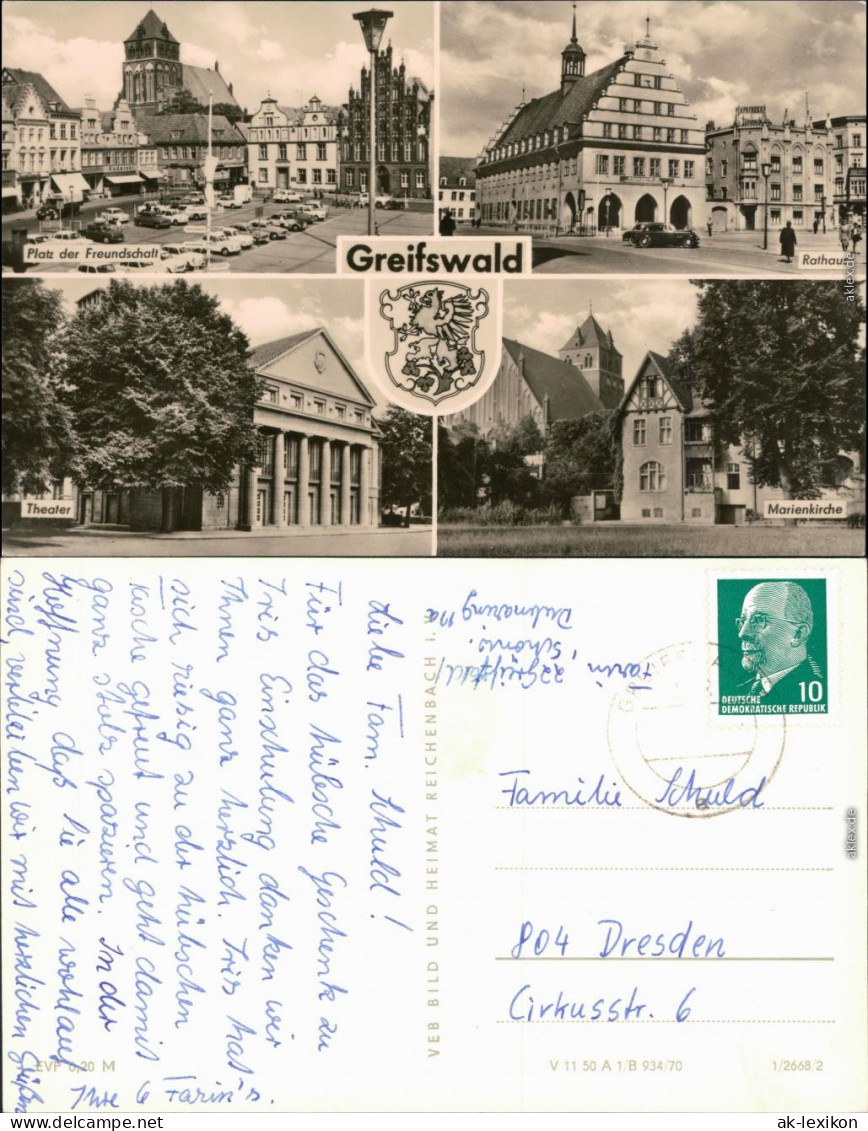 Platz der Freundschaft
Greifswald
Rathaus
Theater
Marienkirche
Liebe Fam. Schuld!
Für das hübsche Geschenk zu
Iris Einschulung danken wir
Ihnen ganz herzlich. Iris hat
sich riesig zu der hübschen
gefreut und geht damit
ganz stolz spazieren. In der
Hoffnung, daß Sie alle wohlauf
sind, verbleiben wir mit herzlichen Grüßen
Ihre 6 Farin's.
Farin, 22 Greifswald/
Schönw.
11a
VEB BILD UND HEIMAT REICHENBACH I. V.
DEUTSCHE
DEMOKRATISCHE REPUBLIK
10
Familie Schuld
804 Dresden
Cirkusstr. 6
EVP 0,20 M
V 11 50 A 1/B 934/70
1/2668/2
aklex.de
aklex.de
www.ansichtskarten-lexikon.de
ak-lexikon